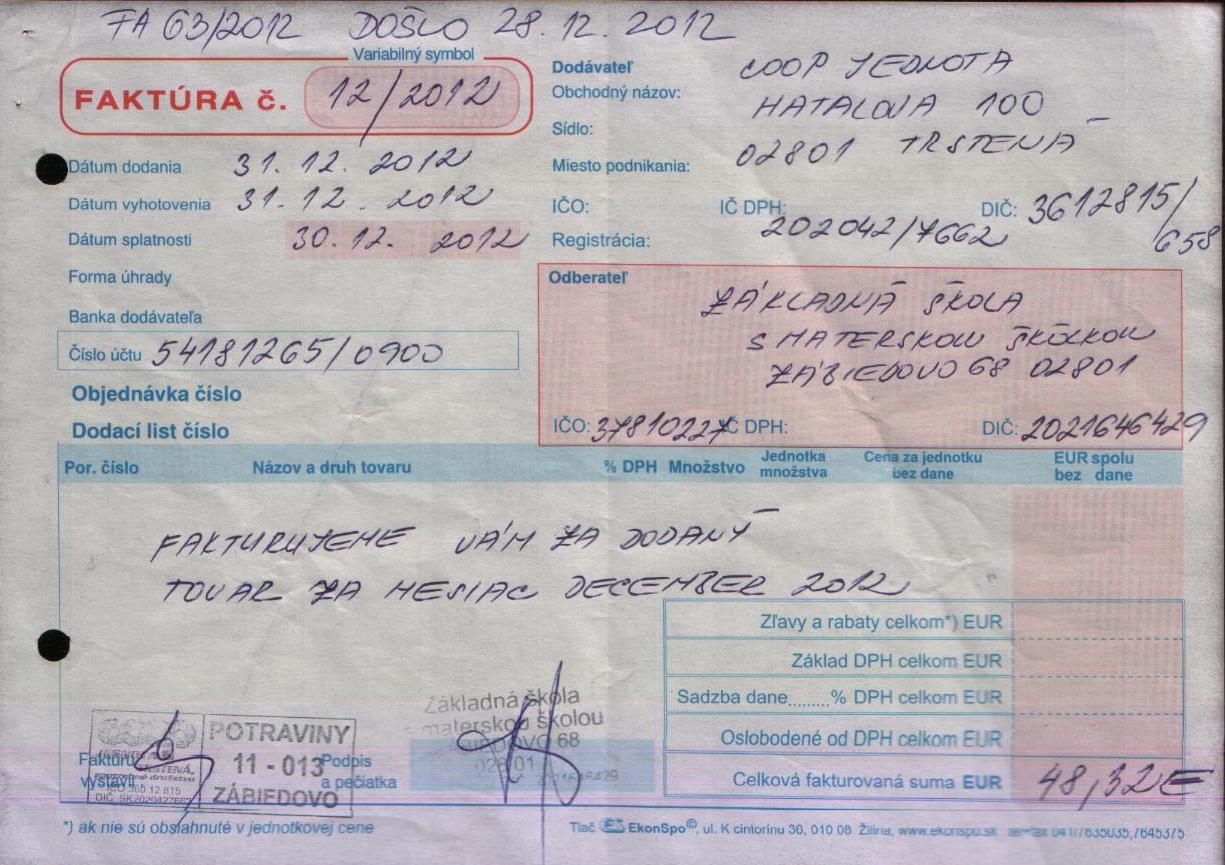 FA 63/2012 DOŠLO 28.12.2012
Variabilný symbol
FAKTÚRA č. 12/2012
Dodávateľ COOP JEDNOTA
Obchodný názov: HATALOVA 100
Sídlo:
Miesto podnikania: 02801 TRSTENÁ
Dátum dodania 31.12.2012
Dátum vyhotovenia 31.12.2012
Dátum splatnosti 30.12.2012
IČO: IČ DPH: 202042/7662 DIČ: 3612815/658
Registrácia:
Forma úhrady
Banka dodávateľa
Číslo účtu 54181265/0900
Objednávka číslo
Dodací list číslo
Odberateľ
ZÁKLADNÁ ŠKOLA
S MATERSKOU ŠKÔLKOU
ZÁBIEDOVO 68 02801
IČO: 37810227 IČ DPH: DIČ: 2021646429
Por. číslo Názov a druh tovaru % DPH Množstvo Jednotka množstva Cena za jednotku bez dane EUR spolu bez dane
FAKTURUJEME VÁM ZA DODANÝ
TOVAR ZA MESIAC DECEMBER 2012
Zľavy a rabaty celkom*) EUR
Základ DPH celkom EUR
Sadzba dane.........% DPH celkom EUR
Oslobodené od DPH celkom EUR
Celková fakturovaná suma EUR 48,32€
Faktúru vystavil
POTRAVINY
11 - 013
ZÁBIEDOVO
Podpis a pečiatka
Základná škola
materskou školou
68
*) ak nie sú obsiahnuté v jednotkovej cene
Tlač EkonSpo©, ul. K cintorínu 36, 010 08 Žilina, www.ekonspo.sk 041/7635035,7645375